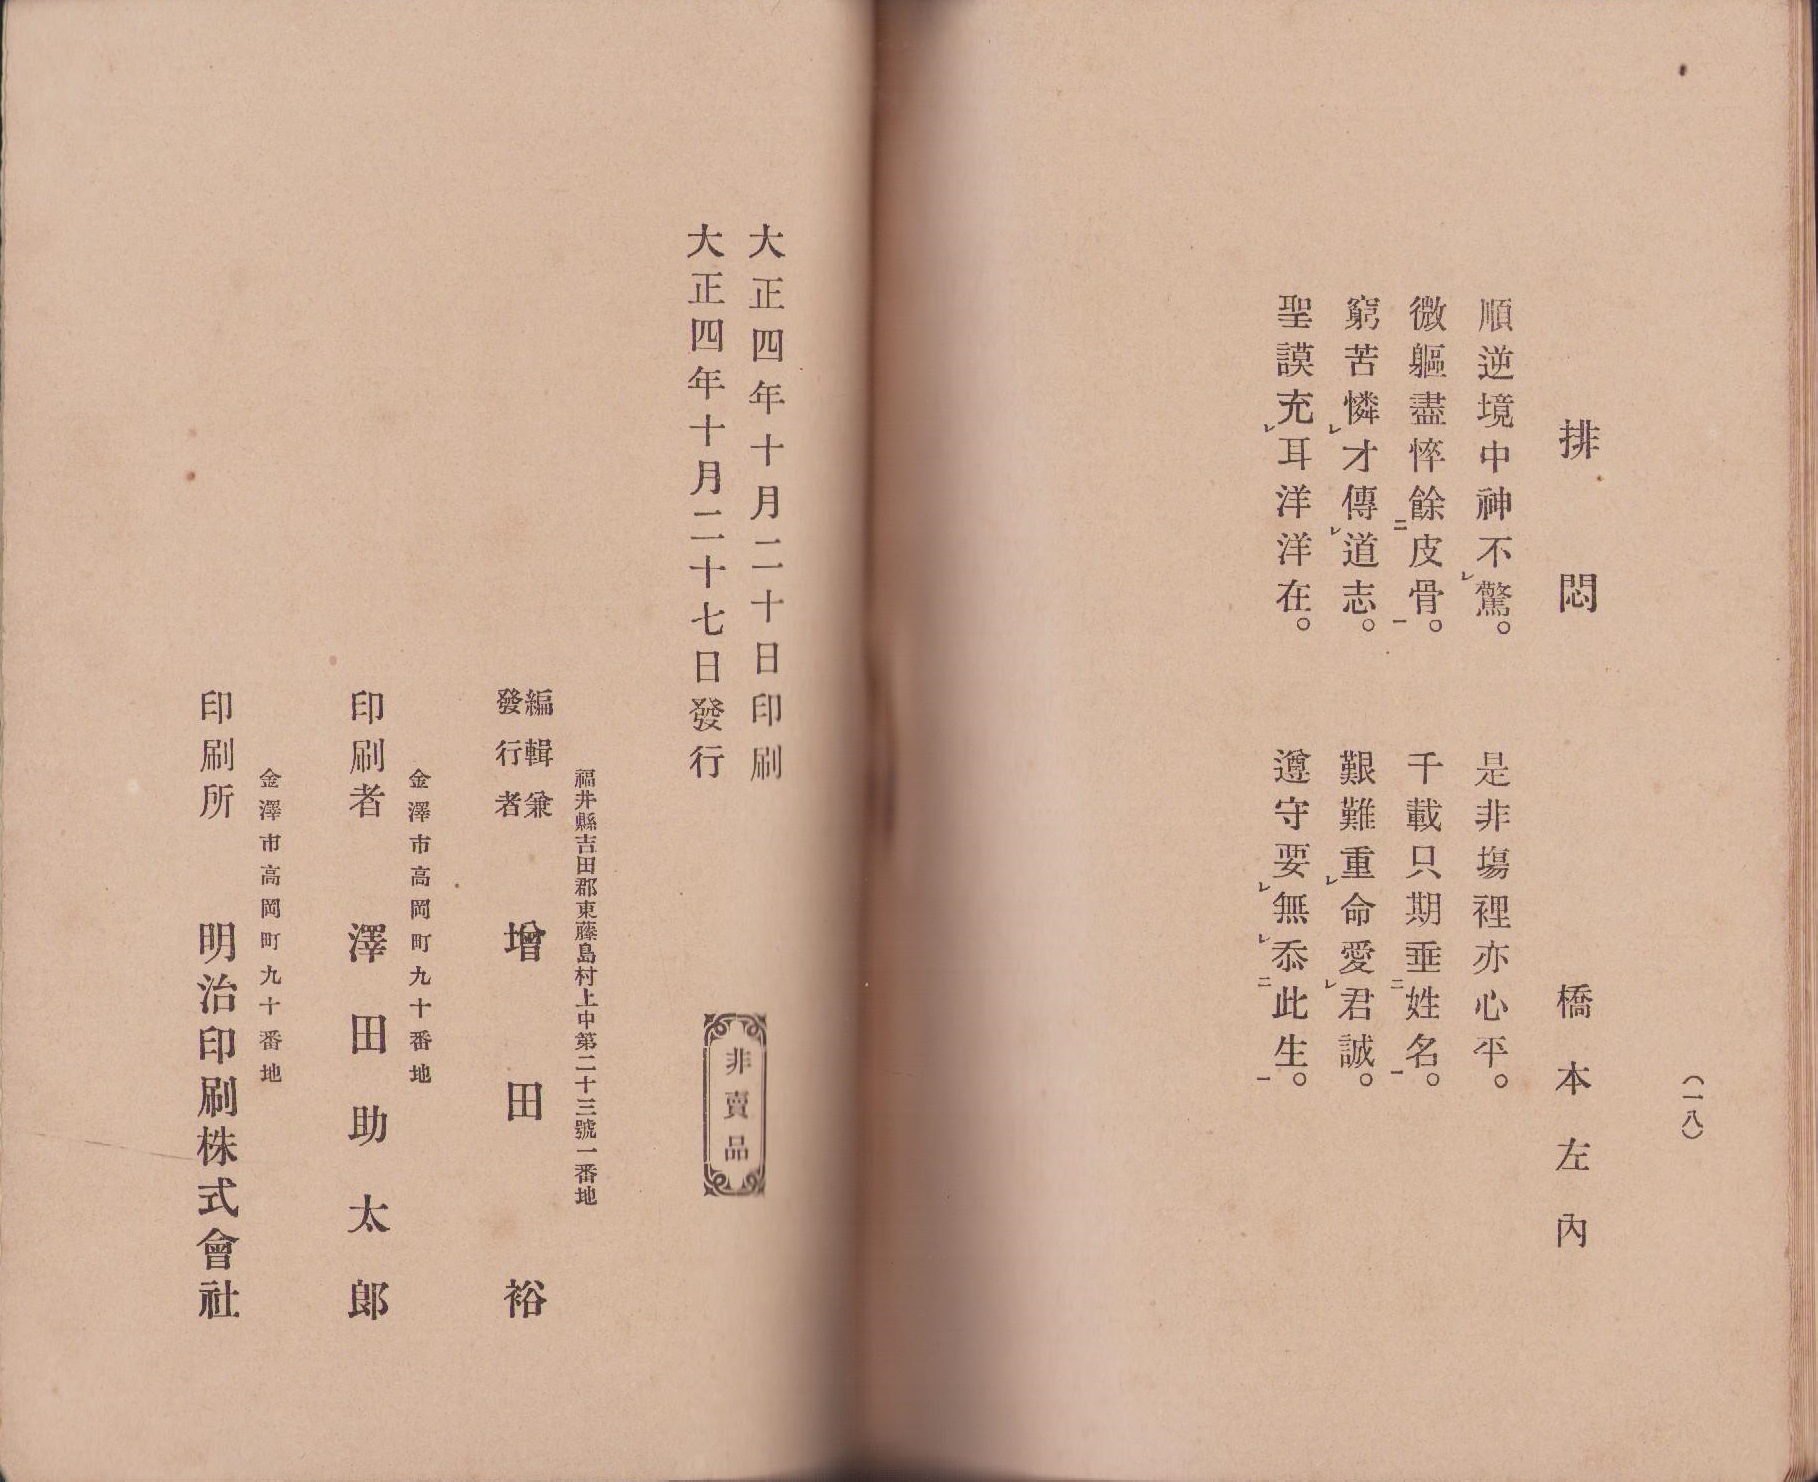 (一八)
排悶
橋本左內
順逆境中神不レ驚。是非塲裡亦心平。
微軀盡悴餘二皮骨一。千載只期垂二姓名一。
窮苦憐レ才傳レ道志。艱難重レ命愛レ君誠。
聖謨充レ耳洋洋在。遵守要レ無レ忝二此生一。
大正四年十月二十日印刷
大正四年十月二十七日發行
非賣品
福井縣吉田郡東藤島村上中第二十三號一番地
編輯兼發行者 增田裕
金澤市高岡町九十番地
印刷者 澤田助太郎
金澤市高岡町九十番地
印刷所 明治印刷株式會社